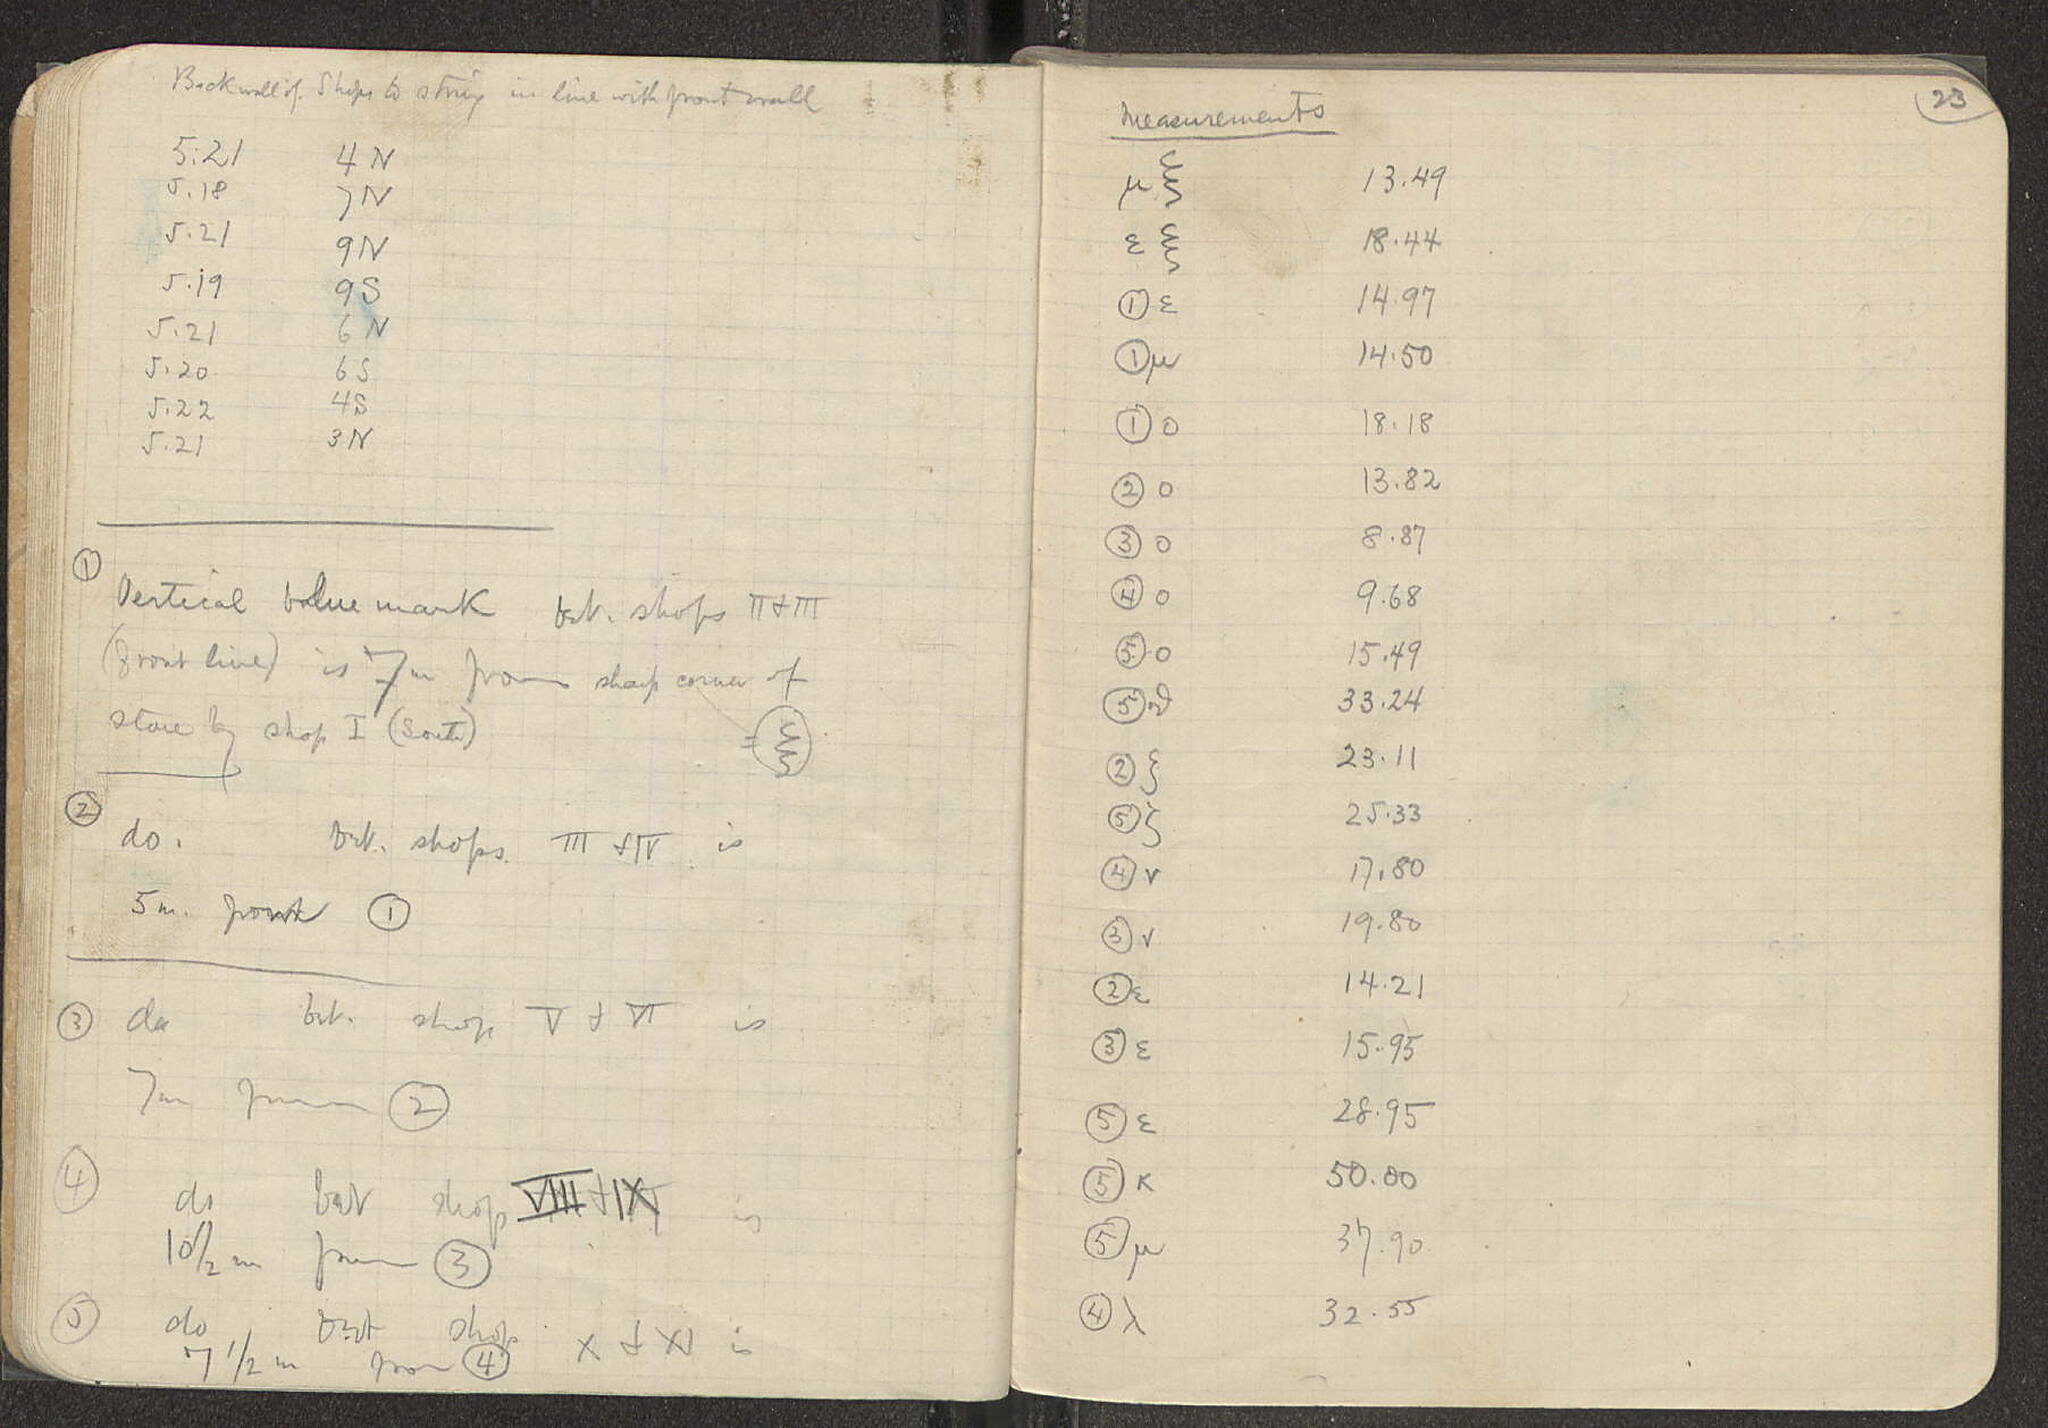 Back wall of Shops to string in line with front wall
5.21 4 N
5.18 7 N
5.21 9 N
5.19 9 S
5.21 6 N
5.20 6 S
5.22 4 S
5.21 3 N
①
Vertical blue mark bet. shops II & III
(front line) is 7 m from sharp corner of
stone by shop I (South) = ξ
②
do. bet. shops III & IV is
5 m. from ①
③ do bet. shop V & VI is
7 m from ②
④
do bet shop VIII & IX is
10 1/2 m from ③
⑤
do bet shop X & XI is
7 1/2 m from ④
23
Measurements
μ ξ 13.49
ε ξ 18.44
① ε 14.97
① μ 14.50
① o 18.18
② o 13.82
③ o 8.87
④ o 9.68
⑤ o 15.49
⑤ ϑ 33.24
② ξ 23.11
⑤ ζ 25.33
④ ν 17.80
③ ν 19.80
② ε 14.21
③ ε 15.95
⑤ ε 28.95
⑤ κ 50.00
⑤ μ 37.90
④ λ 32.55